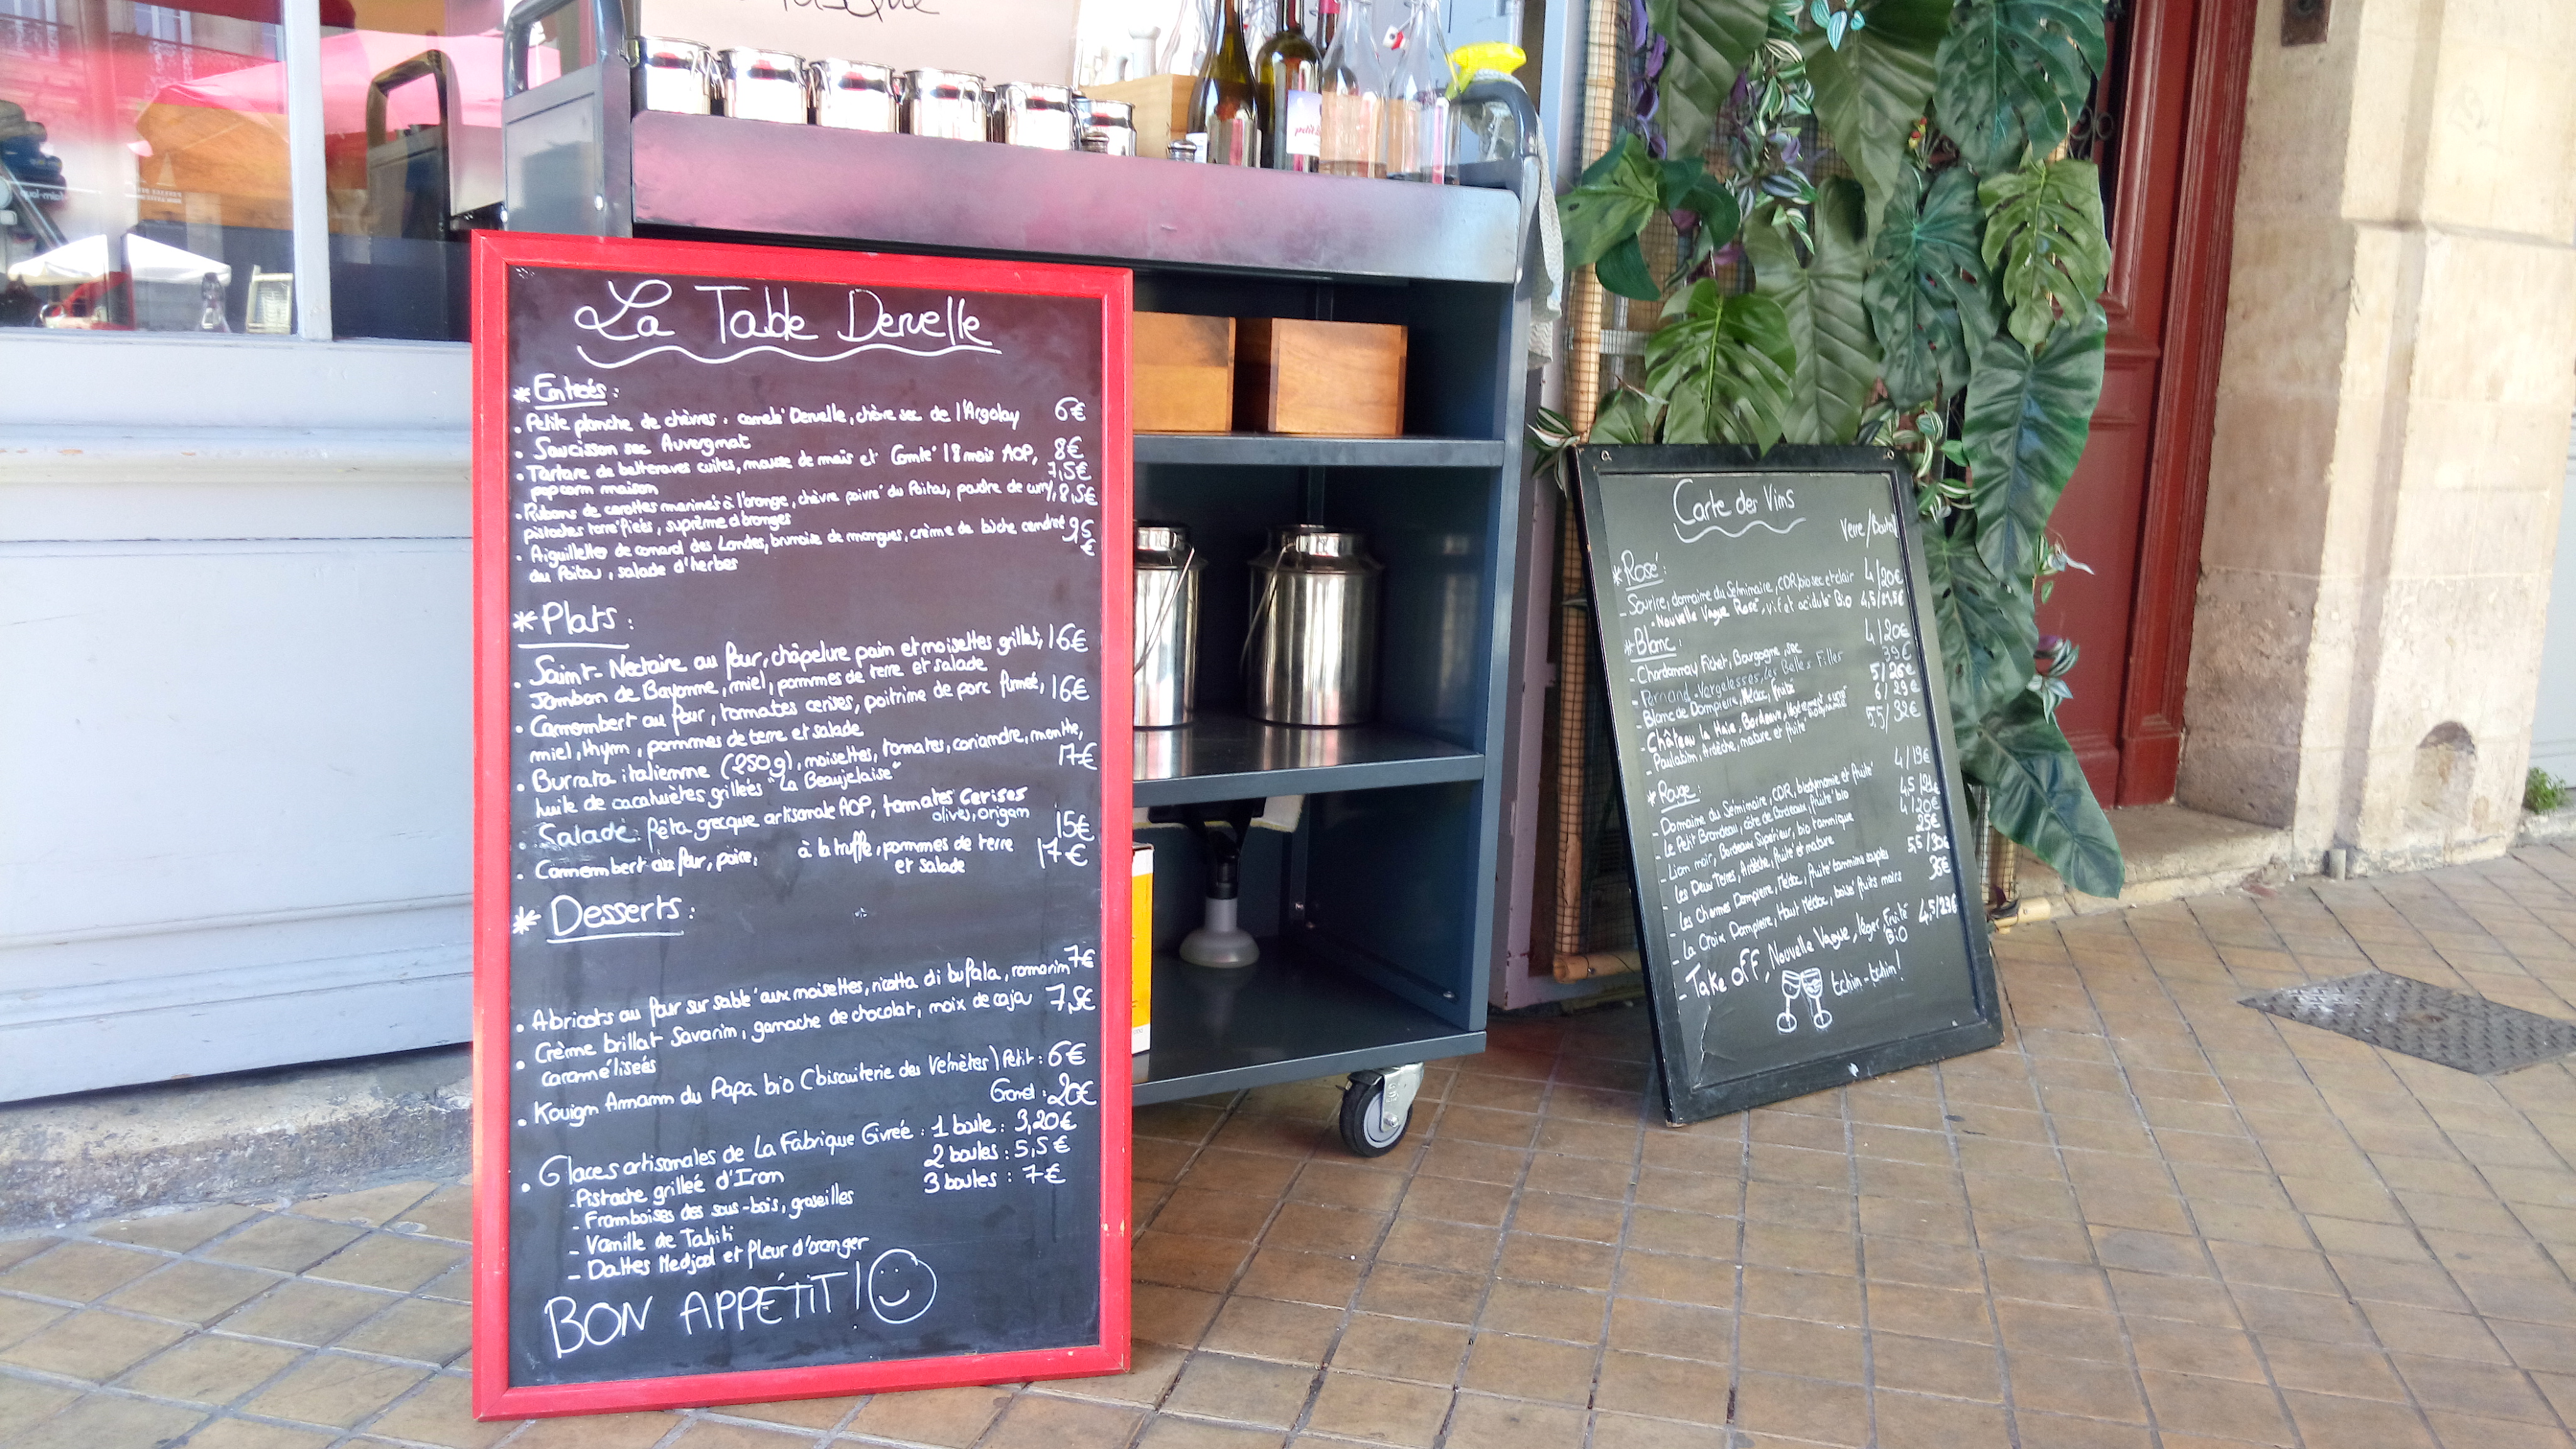 La Table Dervelle
* Entrées :
• Petite planche de chèvres : camelé Dervelle, chèvre sec de l'Argolay 6€
• Saucisson sec Auvergnat 8€
• Tartare de betteraves cuites, mousse de maïs et Comté 18 mois AOP, 7,5€
popcorn maison
• Rubans de carottes marinés à l'orange, chèvre poivré du Poitou, poudre de curry, 8,5€
pistaches torréfiés, suprême d'oranges
• Aiguillettes de canard des Landes, brunoise de mangues, crème de bûche cendrée 9,5
du Poitou, salade d'herbes €
* Plats :
• Saint-Nectaire au four, châpelure pain et noisettes grillés, 16€
Jambon de Bayonne, miel, pommes de terre et salade
• Camembert au four, tomates cerises, poitrine de porc fumée, 16€
miel, thym, pommes de terre et salade
• Burrata italienne (250g), noisettes, tomates, coriandre, menthe,
huile de cacahuètes grillées "La Beaujelaise" 17€
• Salade : fêta grecque artisanale AOP, tomates Cerises
olives, origan 15€
• Camembert au four, poire, à la truffe, pommes de terre 17€
et salade
* Desserts :
• Abricots au four sur sablé aux noisettes, ricotta di bufala, romarin 7€
• Crème brillat Savarin, ganache de chocolat, noix de caju 7,5€
caramélisées
• Kouign Amann du Papa bio (biscuiterie des Vénètes) Petit : 6€
Grand : 20€
• Glaces artisanales de La Fabrique Givrée : 1 boule : 3,20€
2 boules : 5,5€
- Pistache grillée d'Iran
3 boules : 7€
- Framboises des sous-bois, groseilles
- Vanille de Tahiti
- Dattes Medjool et fleur d'oranger
BON APPÉTIT !
Carte des Vins
Verre/Bouteil
* Rosé :
- Sourire, domaine du Séminaire, CDR, bio sec et clair 4/20€
• Nouvelle Vague Rosé, vif et acidulé Bio 4,5/21,5€
* Blanc :
- Chardonnay Fichet, Bourgogne, sec 4/20€
- Pernand-Vergelesses, les Belles Filles 39€
- Blanc de Dampierre, Médoc, fruité 5/26€
- Château la Haie, Bordeaux, légèrement sucré 6/29€
- Paulabim, Ardèche, nature et fruité 5,5/32€
* Rouge :
- Domaine du Séminaire, CDR, biodynamie et fruité 4/19€
- Le Petit Brandeau, côte de Bordeaux, fruité bio 4,5/
- Lion noir, Bordeaux Supérieur, bio tannique 4/20€
- Les Deux Terres, Ardèche, fruité et nature 25€
- Les Charmes Dampierre, Médoc, fruité tannins souples 5,5/30€
- La Croix Dampierre, Haut Médoc, boisé fruits noirs 36€
- Take off, Nouvelle Vague, léger Fruité 4,5/23€
BiO
tchin-tchin!